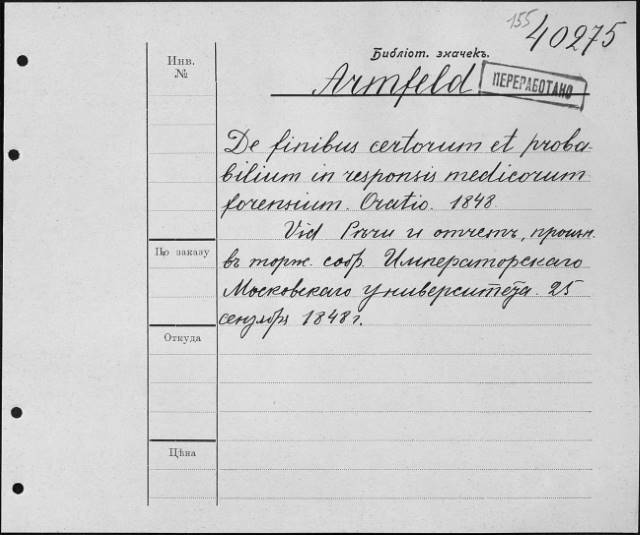 155
40275
Библіот. значекъ.
Armfeld
ПЕРЕРАБОТАНО
Инв.
№
De finibus certorum et proba-
bilium in responsis medicorum
forensium. Oratio. 1848.
Vid Рѣчи и отчетъ, произн.
въ торж. собр. Императорскаго
Московскаго Университета. 25
1848 г.
По заказу
Откуда
Цѣна